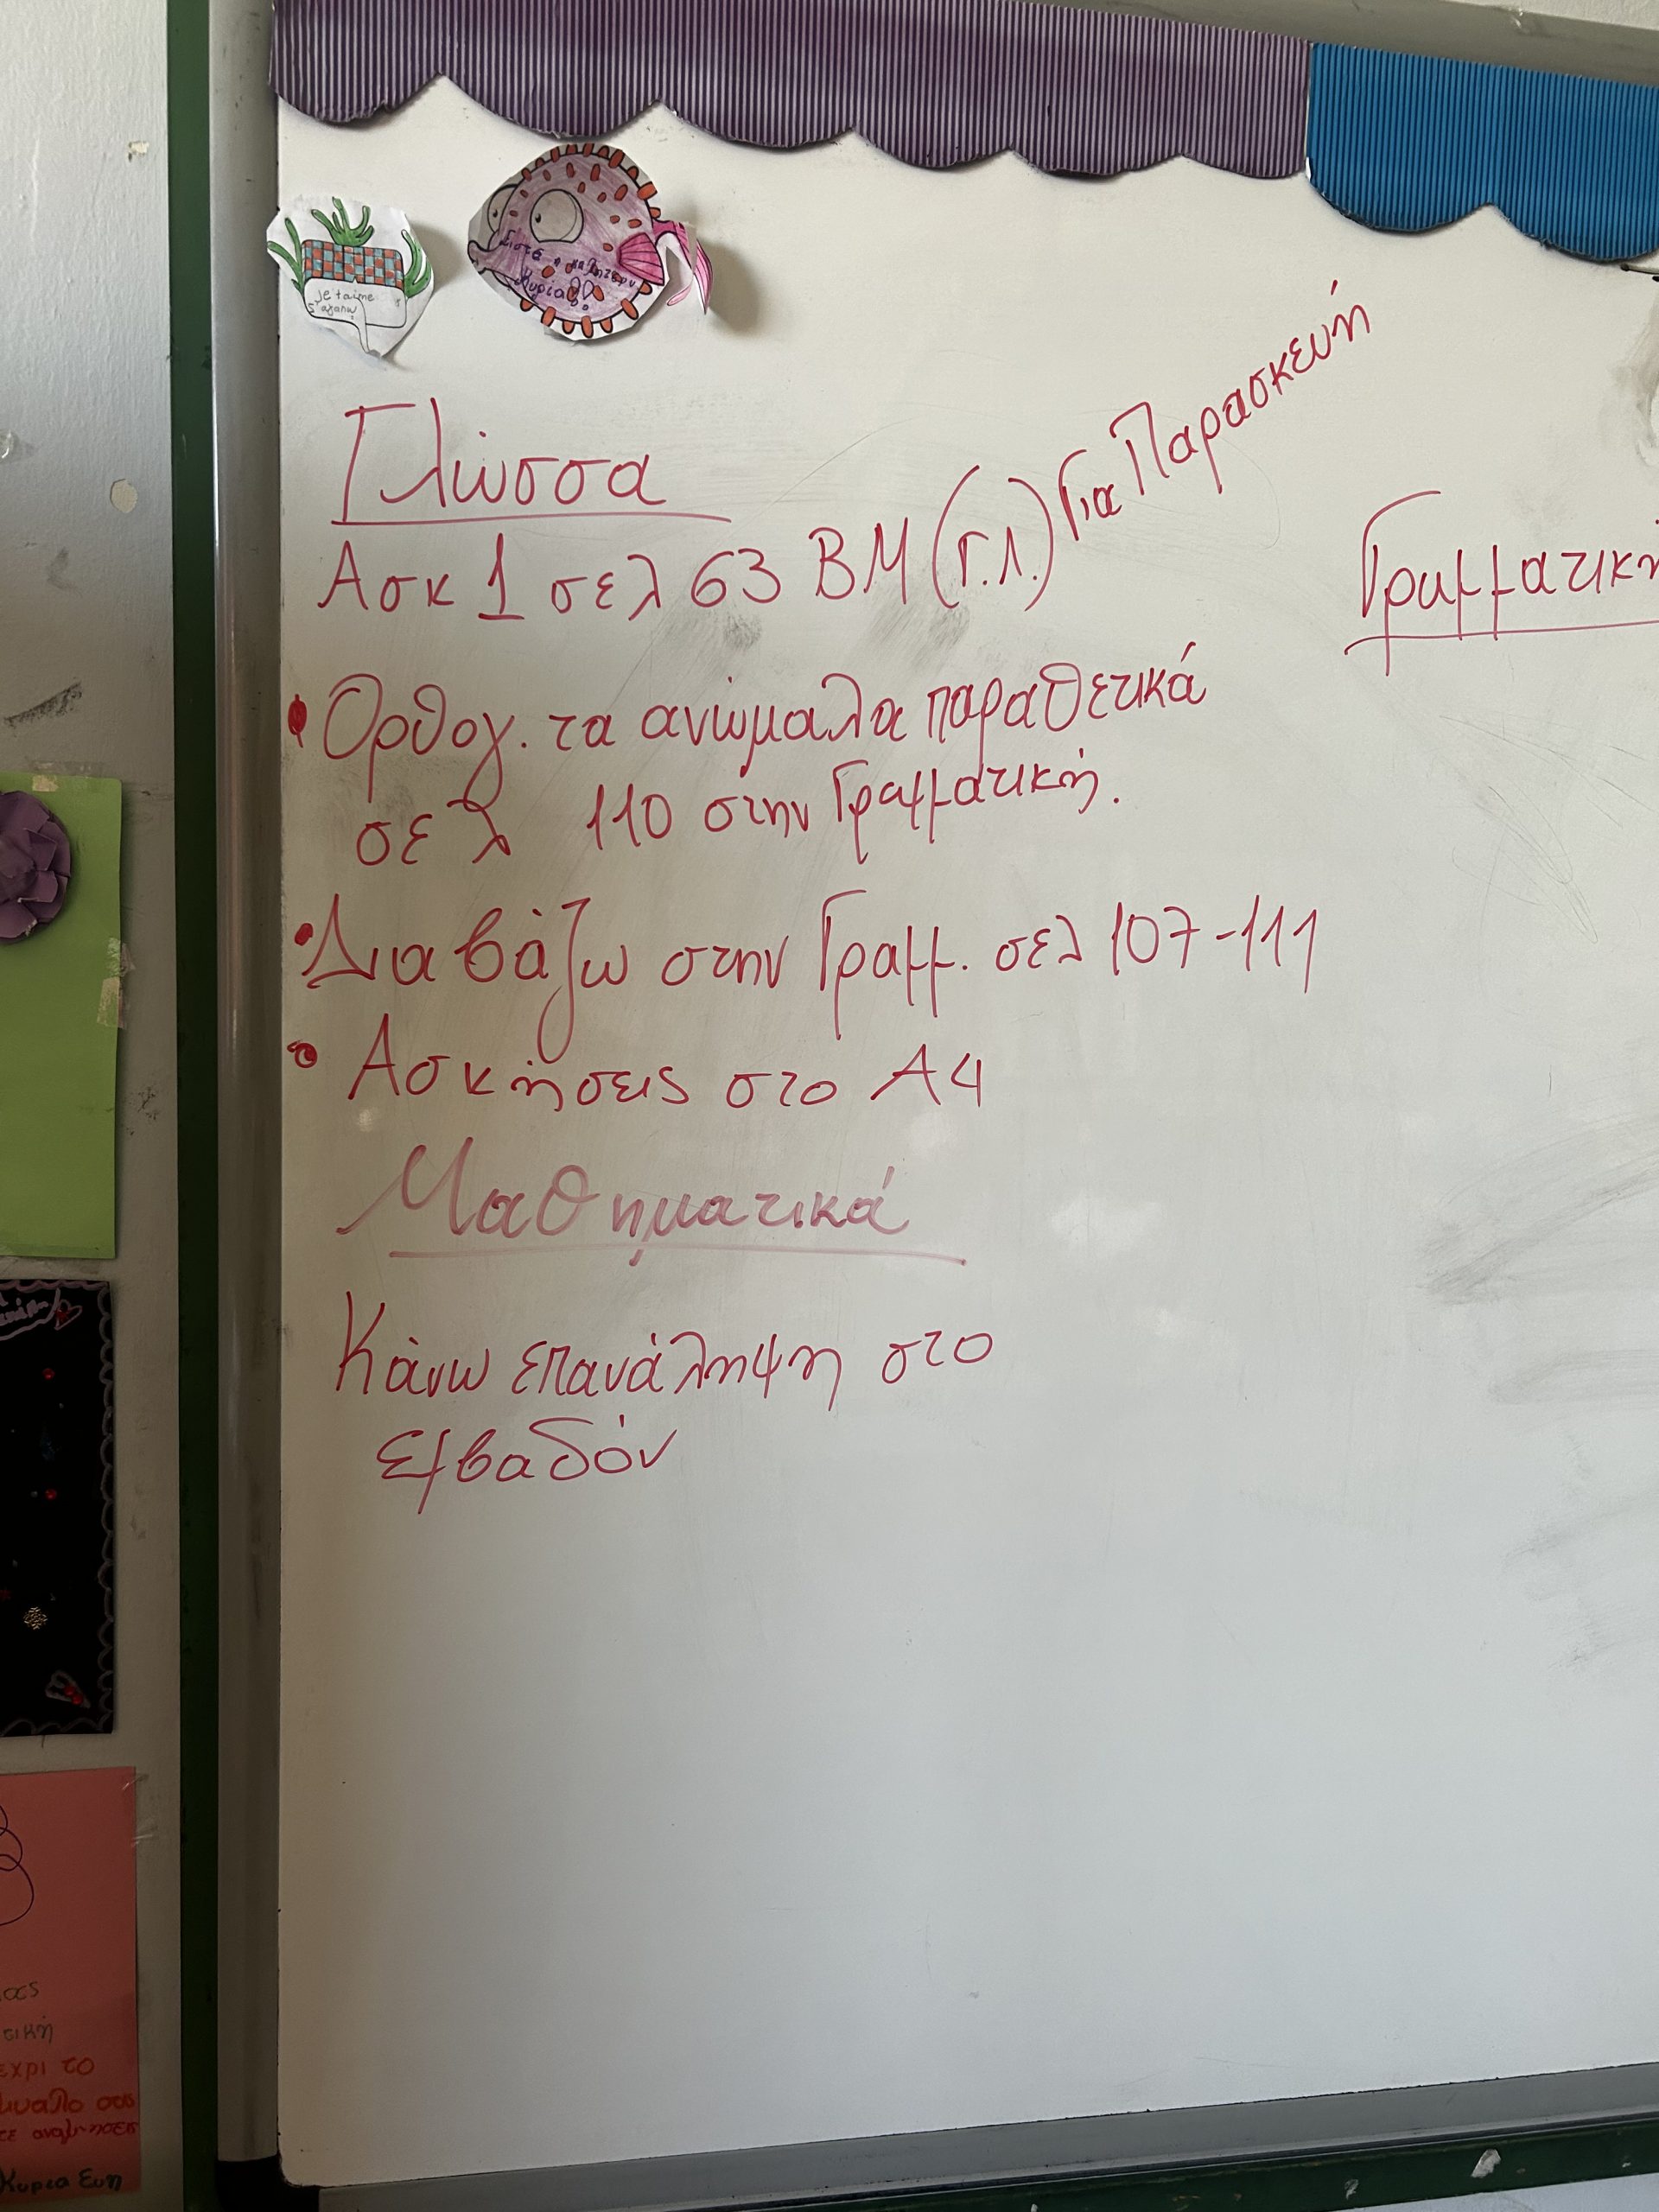 Je t'aime
σ' αγαπώ
Είστε η καλύτερη
Κυρία
Γλώσσα
Για Παρασκευή
Ασκ 1 σελ 63 ΒΜ (Γ.Λ.)
Γραμματική
• Ορθογ. τα ανώμαλα παραθετικά
σελ 110 στην Γραμματική.
• Διαβάζω στην Γραμμ. σελ 107-111
• Ασκήσεις στο Α4
Μαθηματικά
Κάνω επανάληψη στο
εμβαδόν
έχρι το
Κυρία Εύη